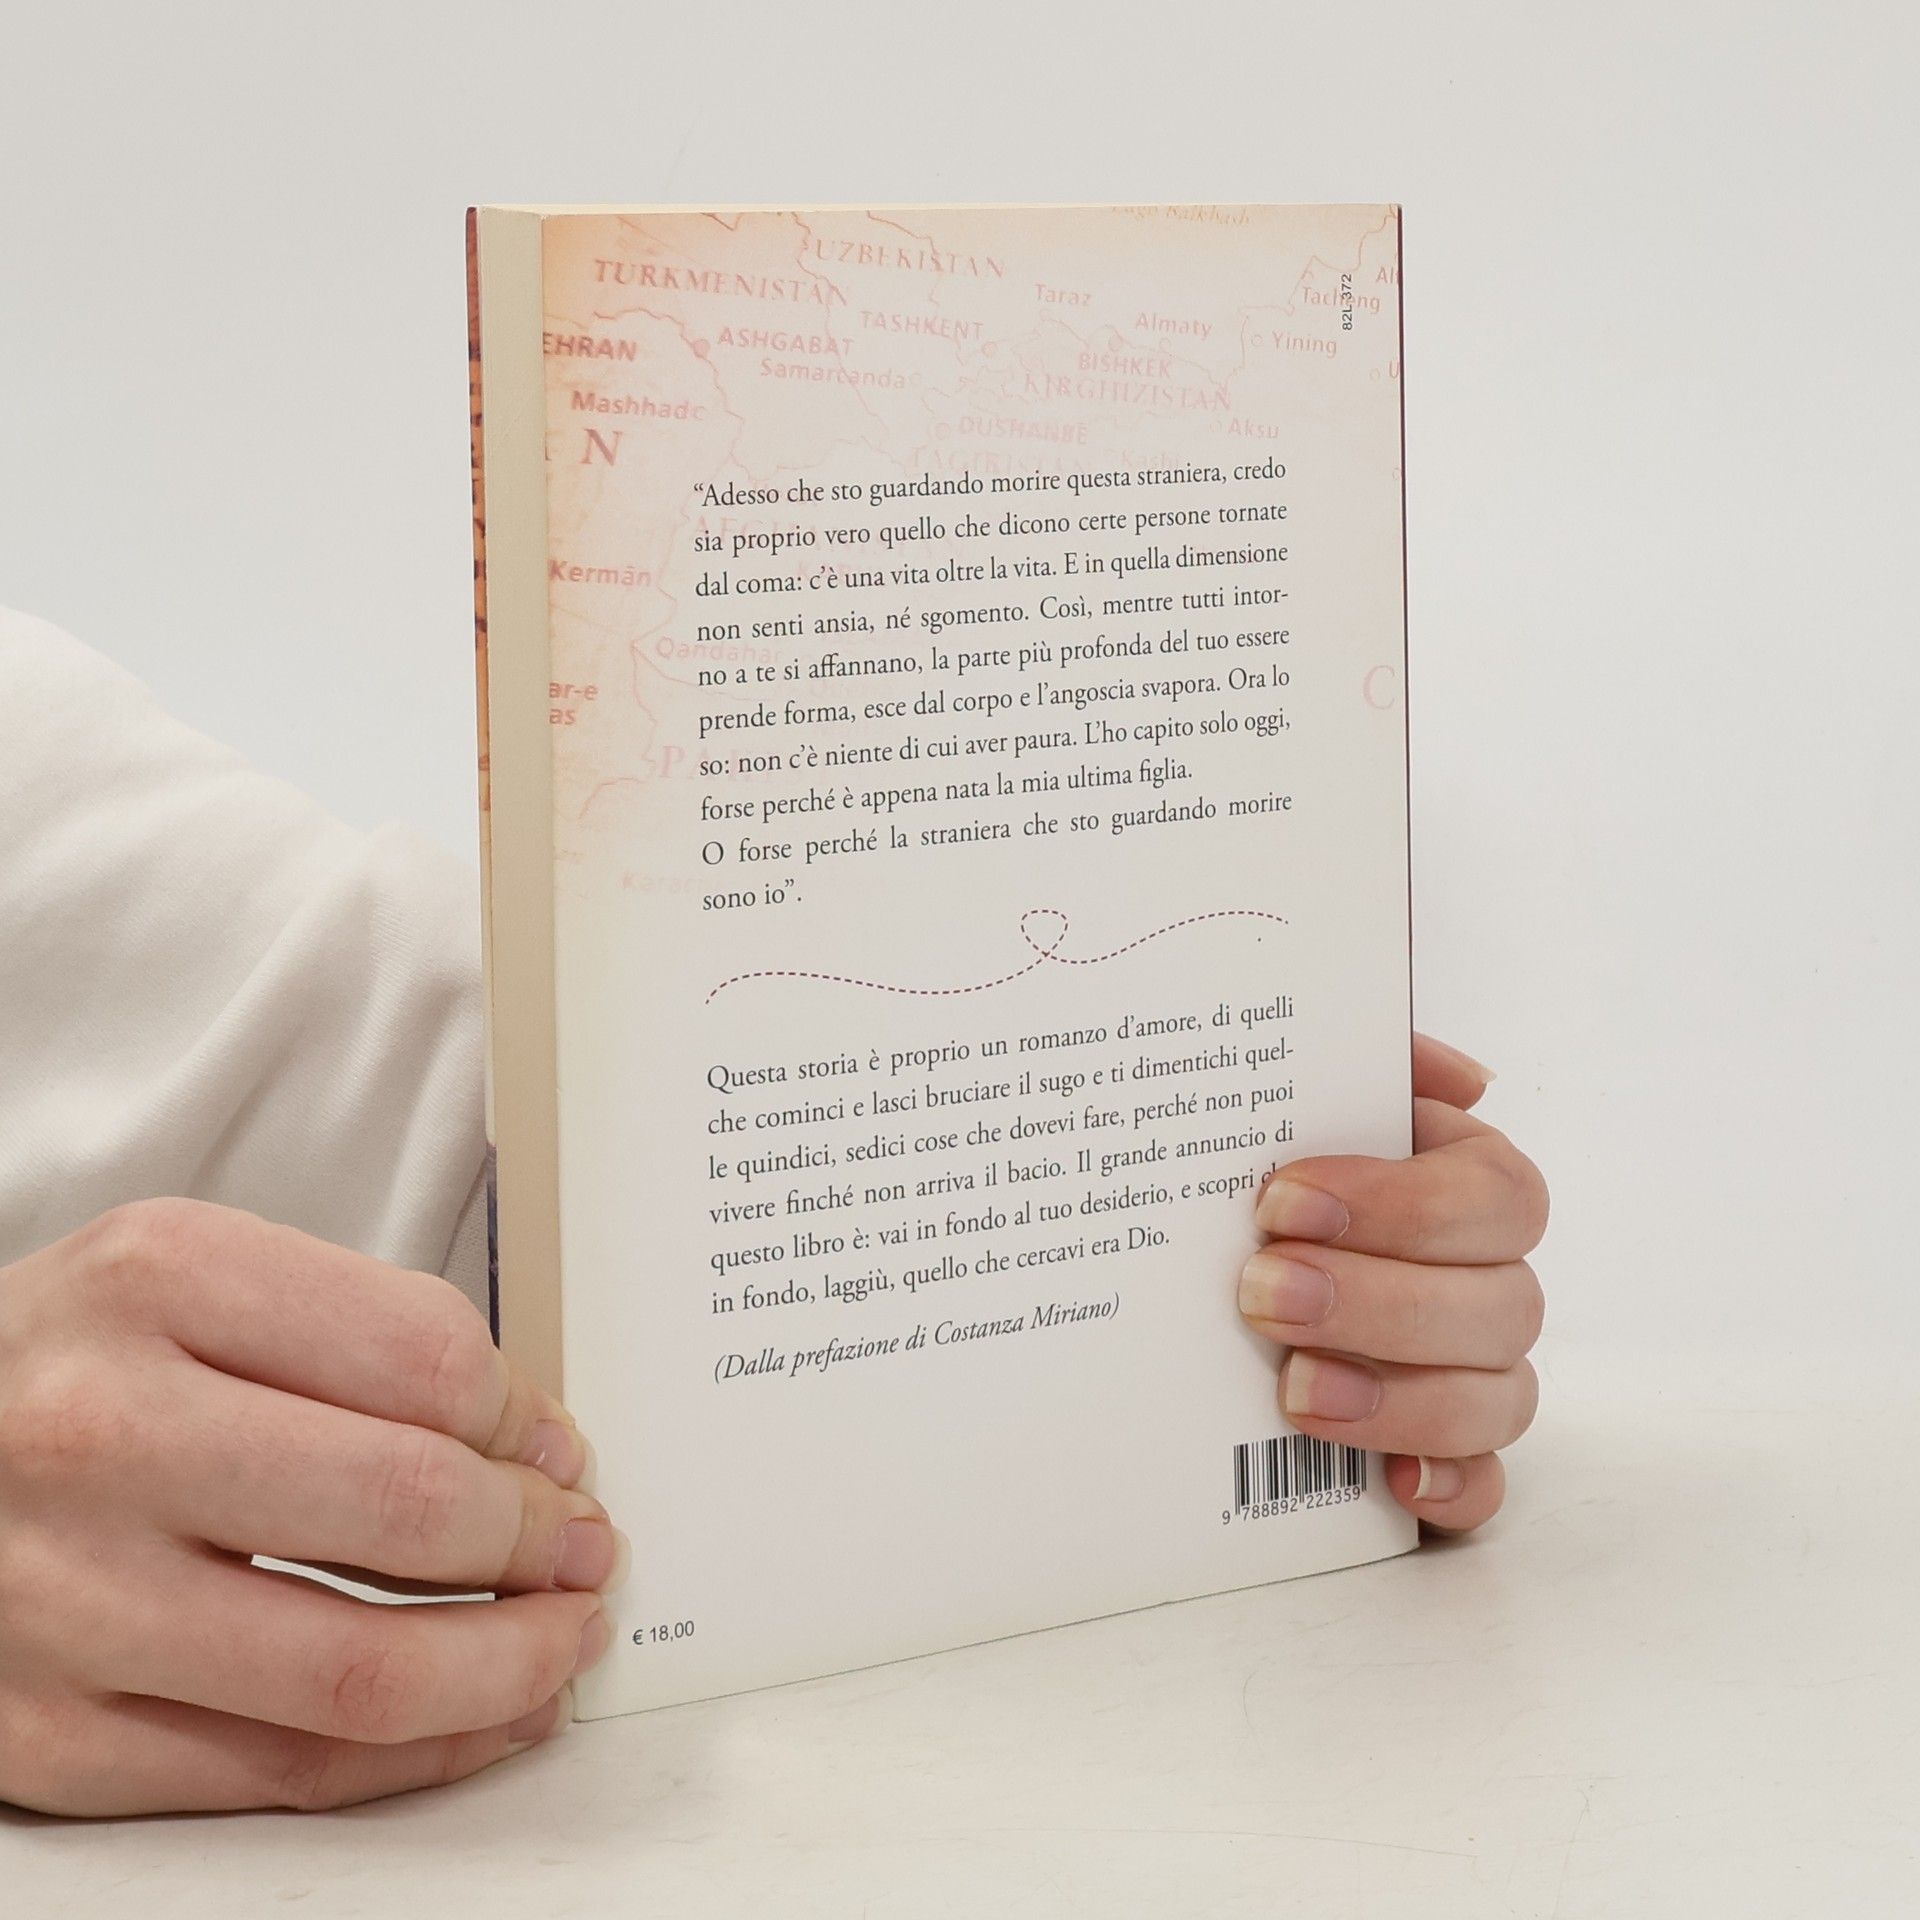 Lago Balkhash
UZBEKISTAN
TURKMENISTAN
Taraz
Tacheng
82L 372
TASHKENT
Almaty
Yining
EHRAN
ASHGABAT
BISHKEK
Samarcanda
KIRGHIZISTAN
Mashhad
DUSHANBE
Aksu
N
TAGIKISTAN
Kashi
“Adesso che sto guardando morire questa straniera, credo
sia proprio vero quello che dicono certe persone tornate
dal coma: c’è una vita oltre la vita. E in quella dimensione
non senti ansia, né sgomento. Così, mentre tutti intor-
no a te si affannano, la parte più profonda del tuo essere
prende forma, esce dal corpo e l’angoscia svapora. Ora lo
so: non c’è niente di cui aver paura. L’ho capito solo oggi,
forse perché è appena nata la mia ultima figlia.
O forse perché la straniera che sto guardando morire
sono io”.
Kermān
Qandahar
ar-e
as
C
Questa storia è proprio un romanzo d’amore, di quelli
che cominci e lasci bruciare il sugo e ti dimentichi quel-
le quindici, sedici cose che dovevi fare, perché non puoi
vivere finché non arriva il bacio. Il grande annuncio di
questo libro è: vai in fondo al tuo desiderio, e scopri
in fondo, laggiù, quello che cercavi era Dio.
(Dalla prefazione di Costanza Miriano)
9 788892 222359
€ 18,00